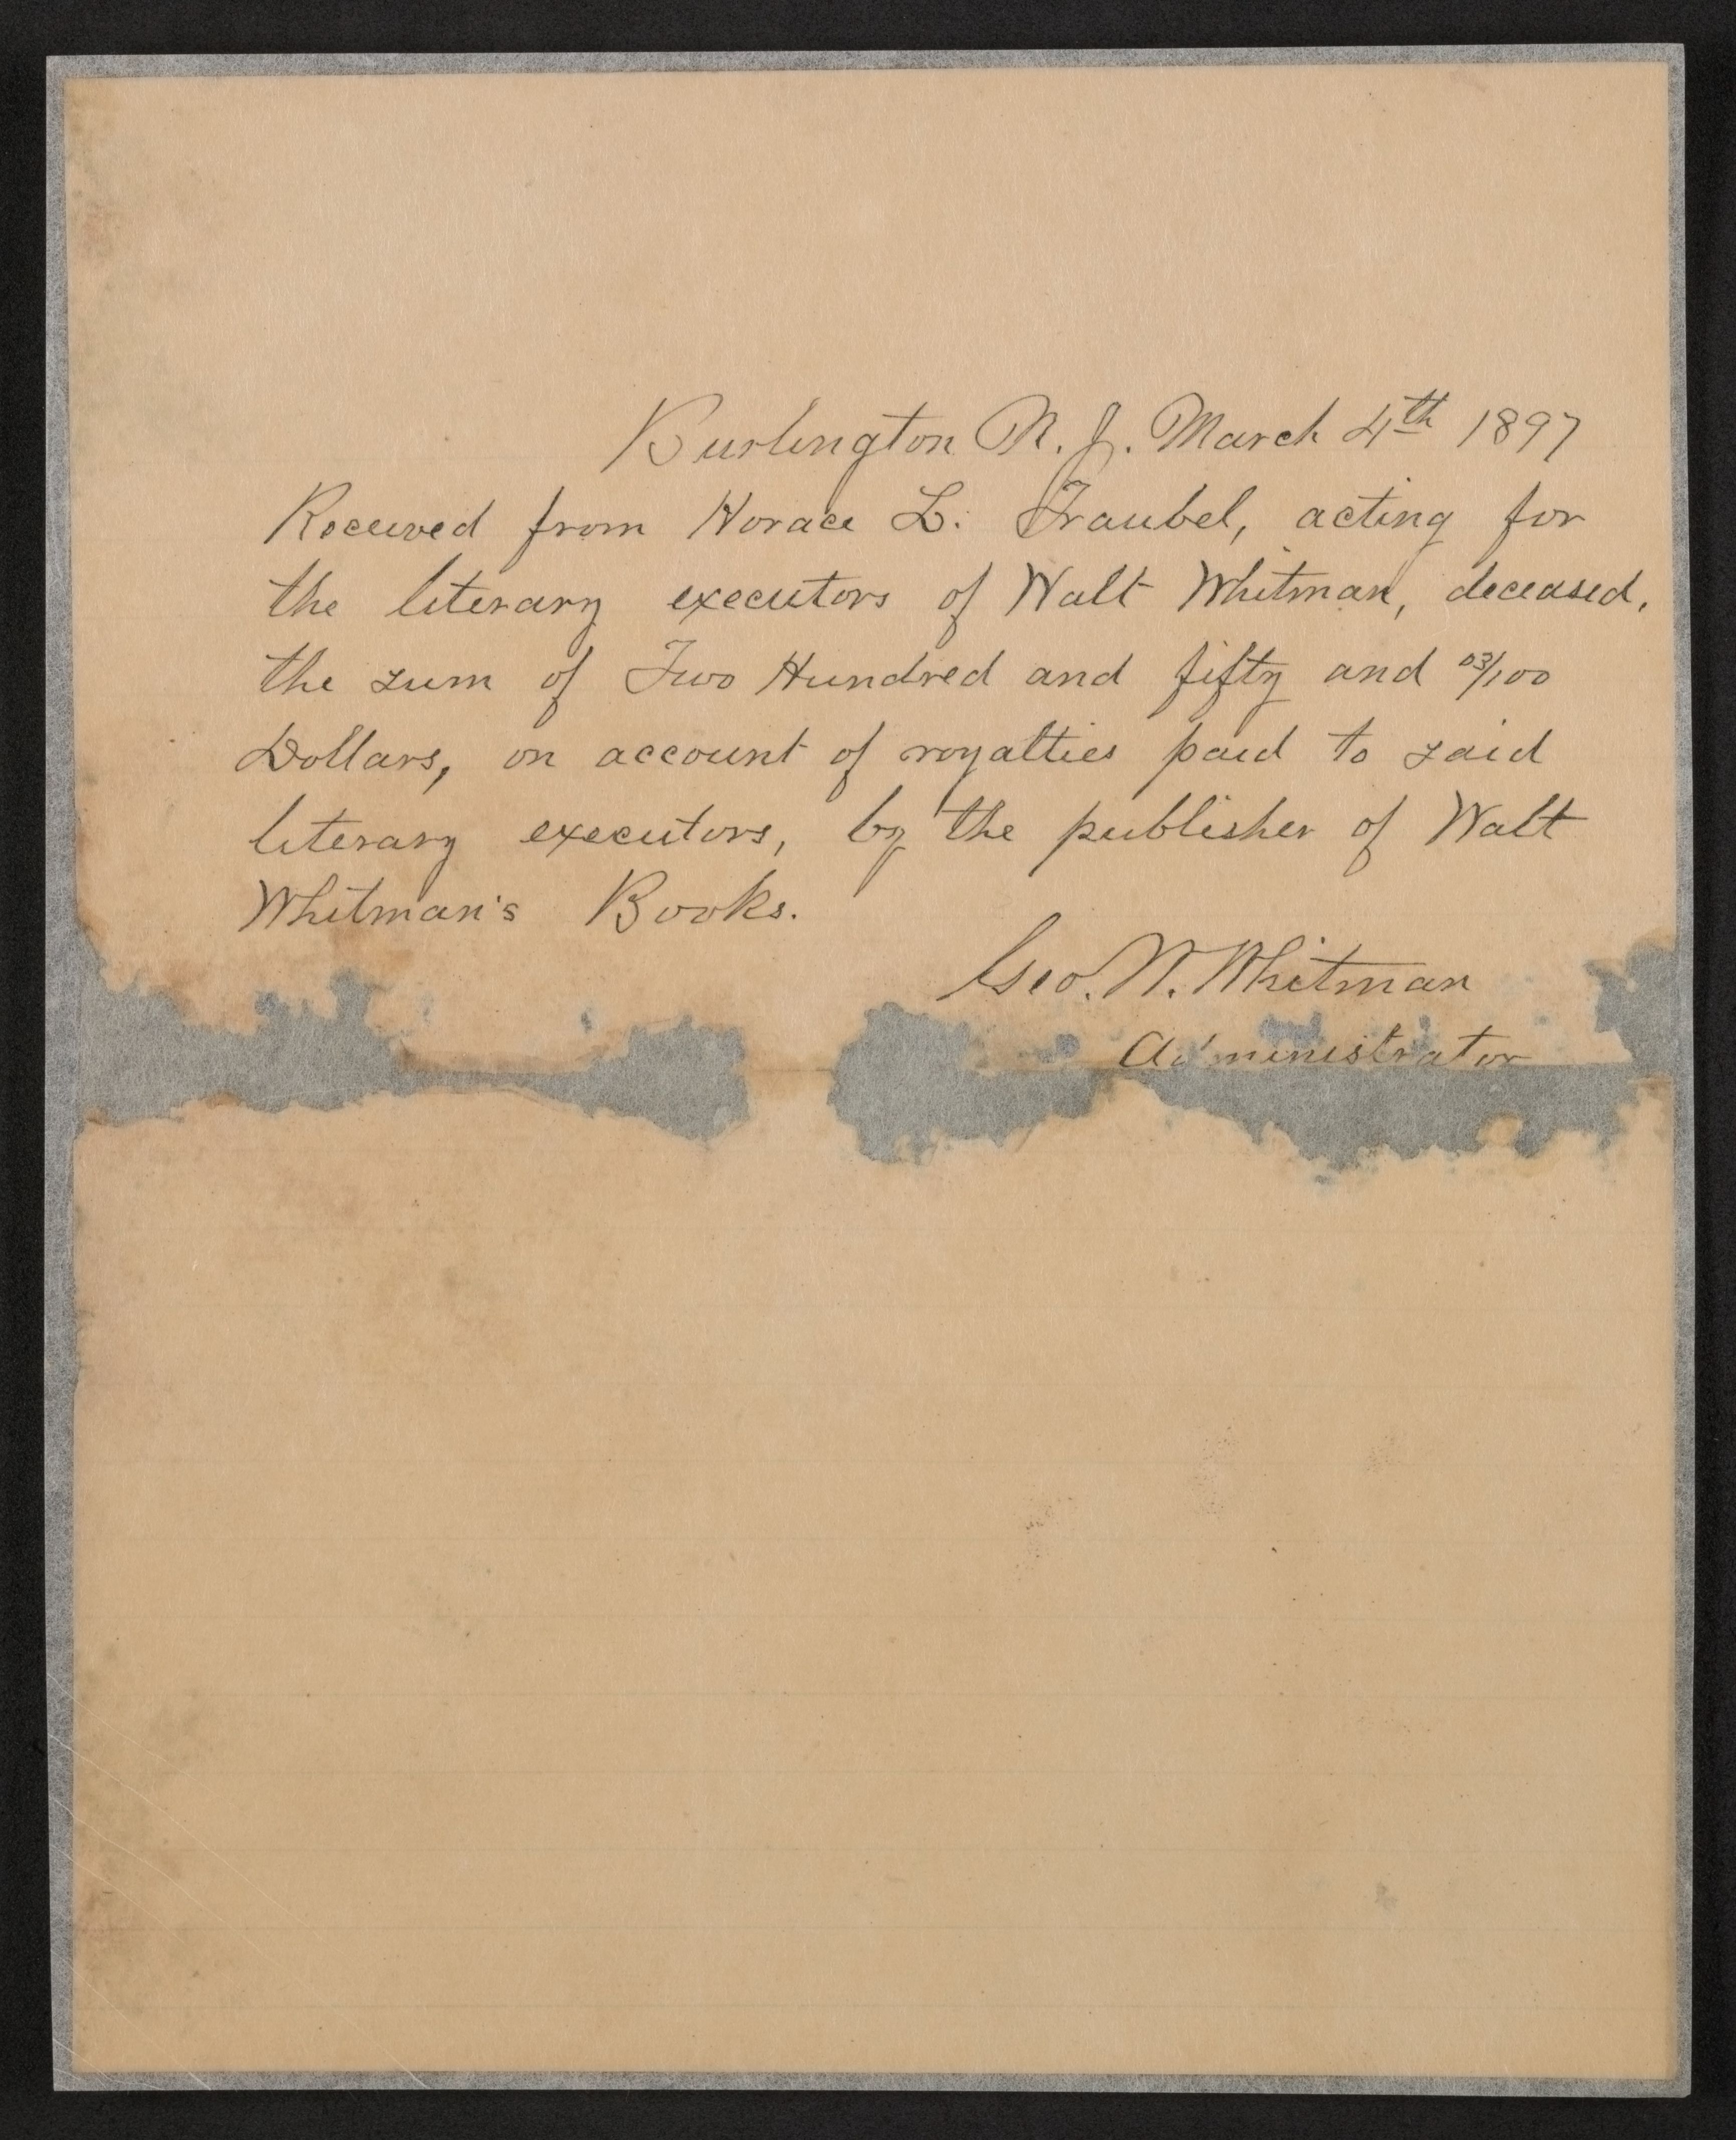 Burlington N. J. March 4th 1897
Received from Horace L. Traubel, acting for
the literary executors of Walt Whitman, deceased,
the sum of Two Hundred and fifty and 03/100
Dollars, on account of royalties paid to said
literary executors, by the publisher of Walt
Whitman's Books.
Geo. W. Whitman
Administrator